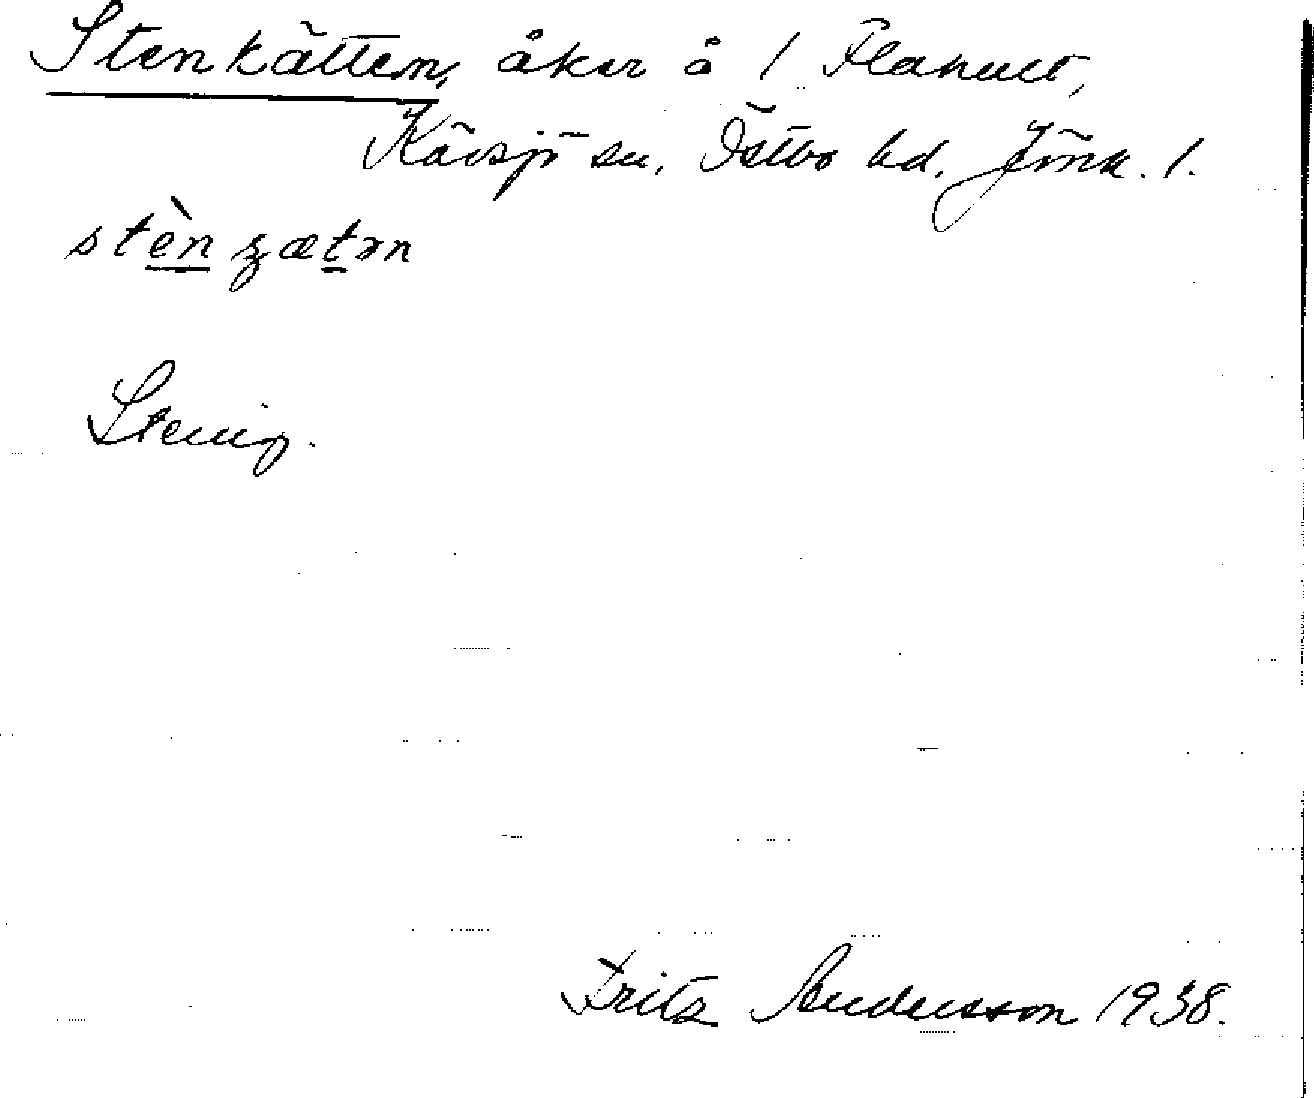 Stenkätten, åker å 1 Flahult,
Kävsjö sn, Östbo hd, Jönk. l.
stènʒætən
Stenig.
Fritz Andersson 1938.